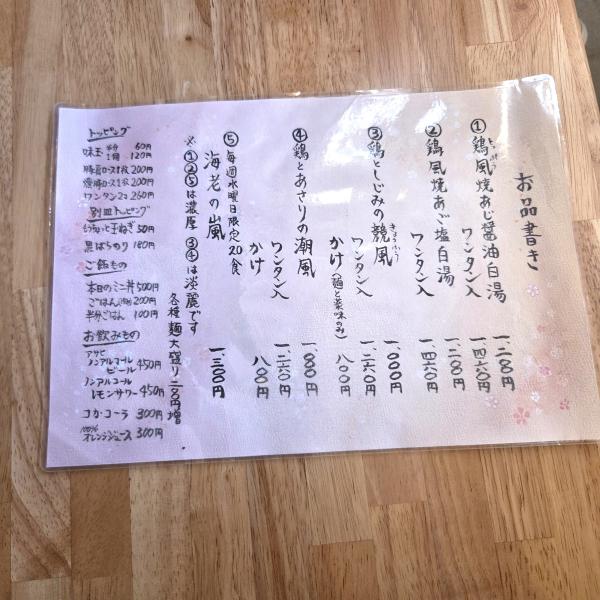 お品書き
とっぷう
① 鶏風焼あじ醤油白湯 一、二〇〇円
ワンタン入 一、四六〇円
② 鶏風焼あご塩白湯 一、二〇〇円
ワンタン入 一、四六〇円
③ 鶏としじみの競風 一、〇〇〇円
きょうふう
ワンタン入 一、二六〇円
かけ(麺と薬味のみ) 八〇〇円
④ 鶏とあさりの潮風 一、〇〇〇円
ワンタン入 一、二六〇円
かけ 八〇〇円
⑤ 毎週水曜日限定20食
海老の嵐 一、三〇〇円
※①②⑤は濃厚 ③④は淡麗です
各種麺大盛り二〇〇円増
トッピング
味玉 半分 60円
1個 120円
豚肩ロース1枚 200円
ロース1枚 200円
ワンタン2コ 260円
別皿トッピング
玉ねぎ 50円
黒ばらのり 180円
ご飯もの
本日のミニ丼 500円
ごはん 200円
半分ごはん 100円
お飲みもの
アサヒ
ノンアルコール
ビール 450円
ノンアルコール
レモンサワー 450円
コカ・コーラ 300円
100%
オレンジジュース 300円